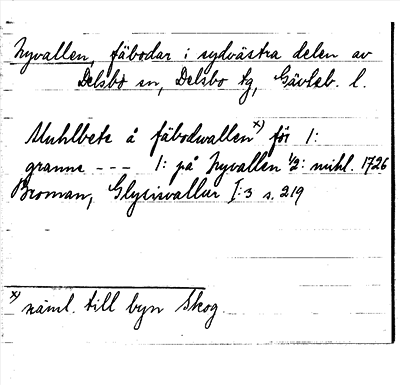 Nyvallen, fäbodar i sydvästra delen av
Delsbo sn, Delsbo tg, Gävleb. l.
Muhlbete å fäbodwallen x) för 1:
granne - - - 1: på Nyvallen 1/2: mihl. 1726
Broman, Glysisvallur I:3 s. 219
x) näml. till byn Skog.